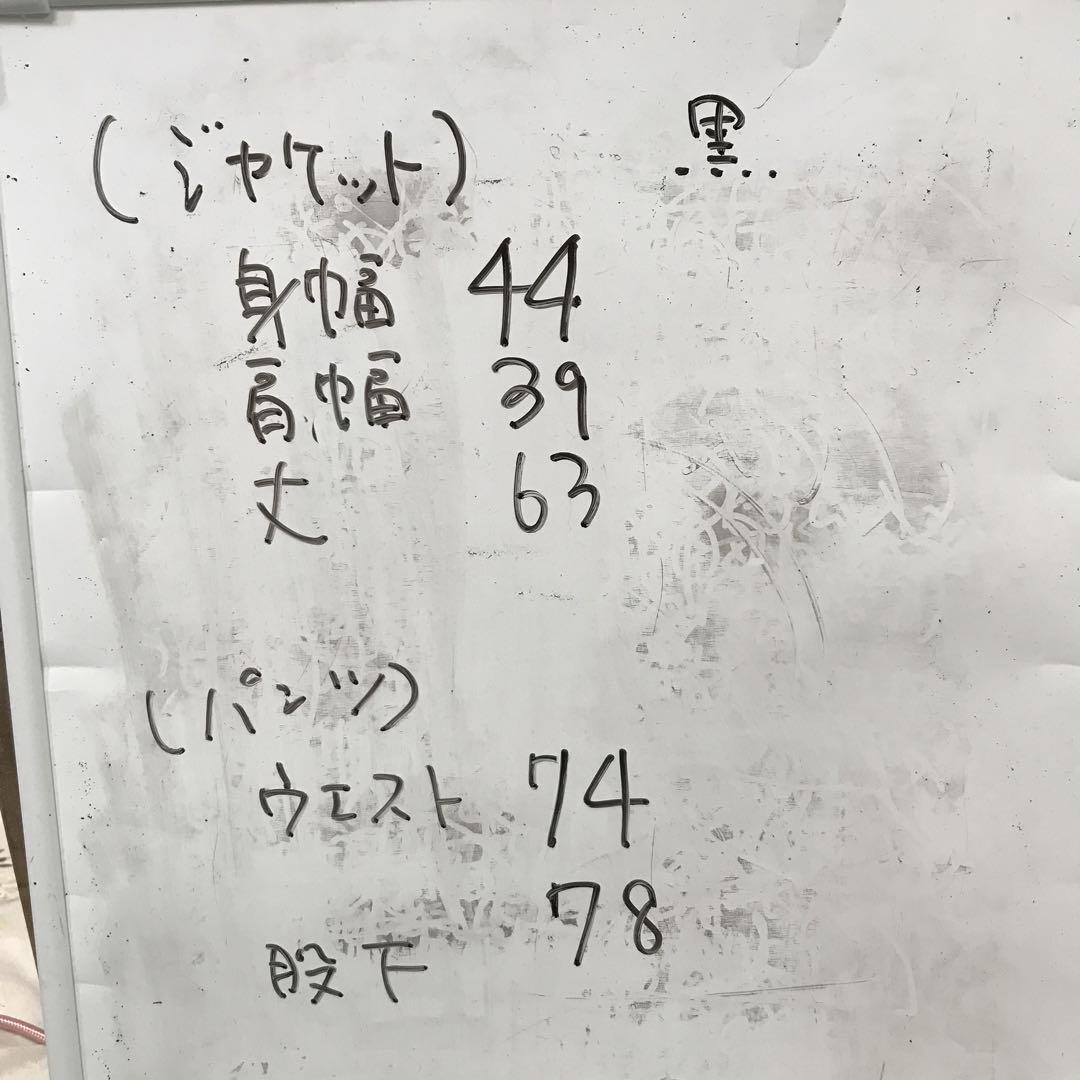 黒
(ジャケット)
身幅 44
肩幅 39
丈 63
(パンツ)
ウエスト 74
股下 78